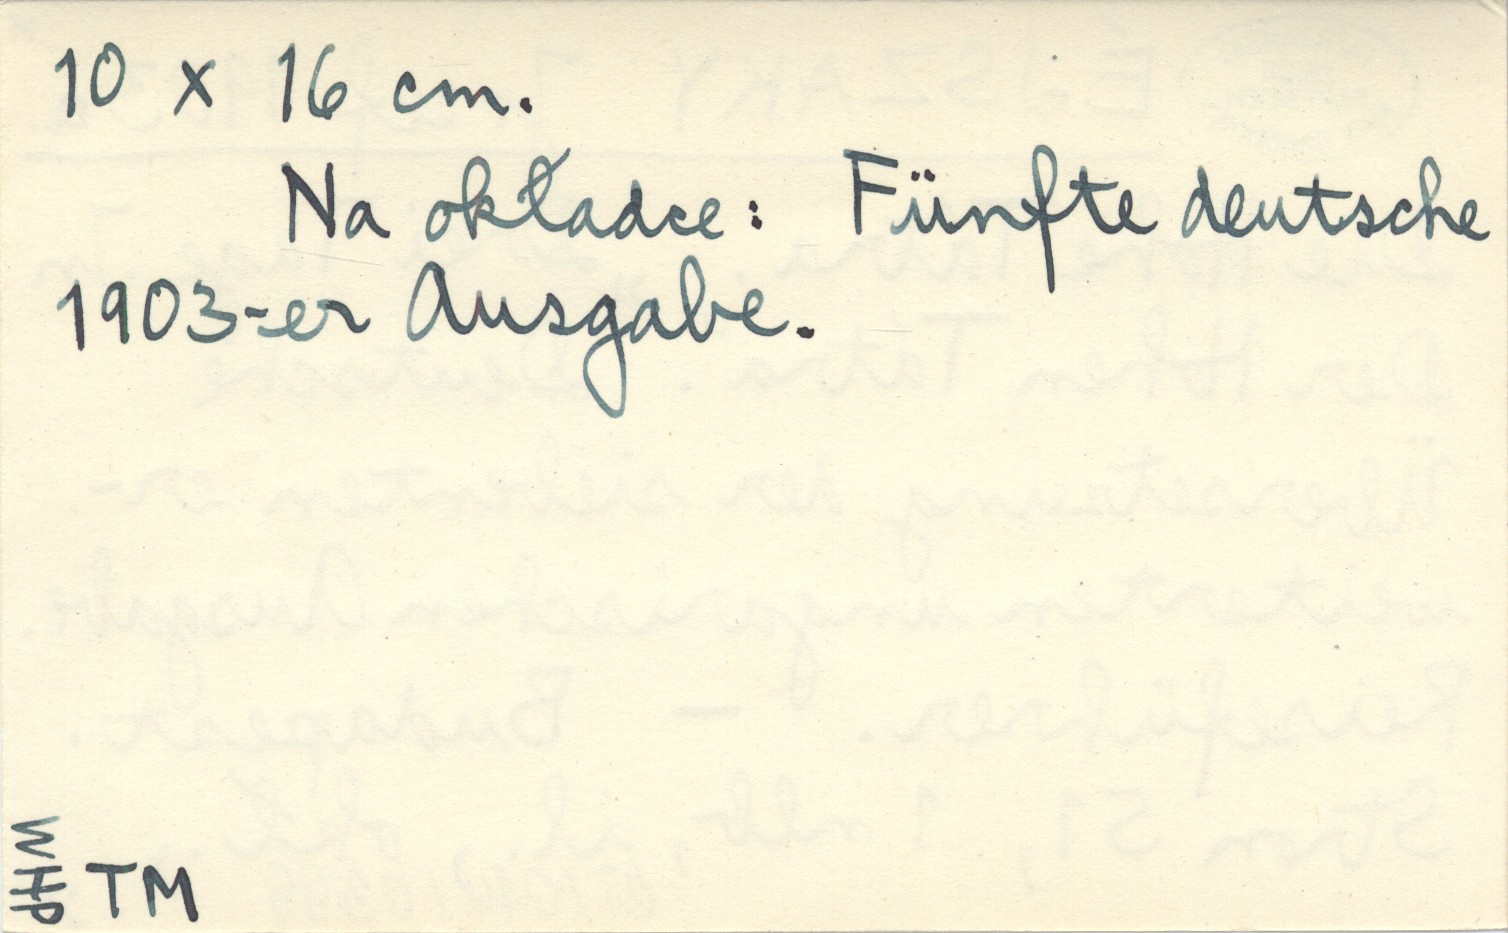 10 x 16 cm.
Na okładce: Fünfte deutsche
1903-er Ausgabe.
WHP
TM